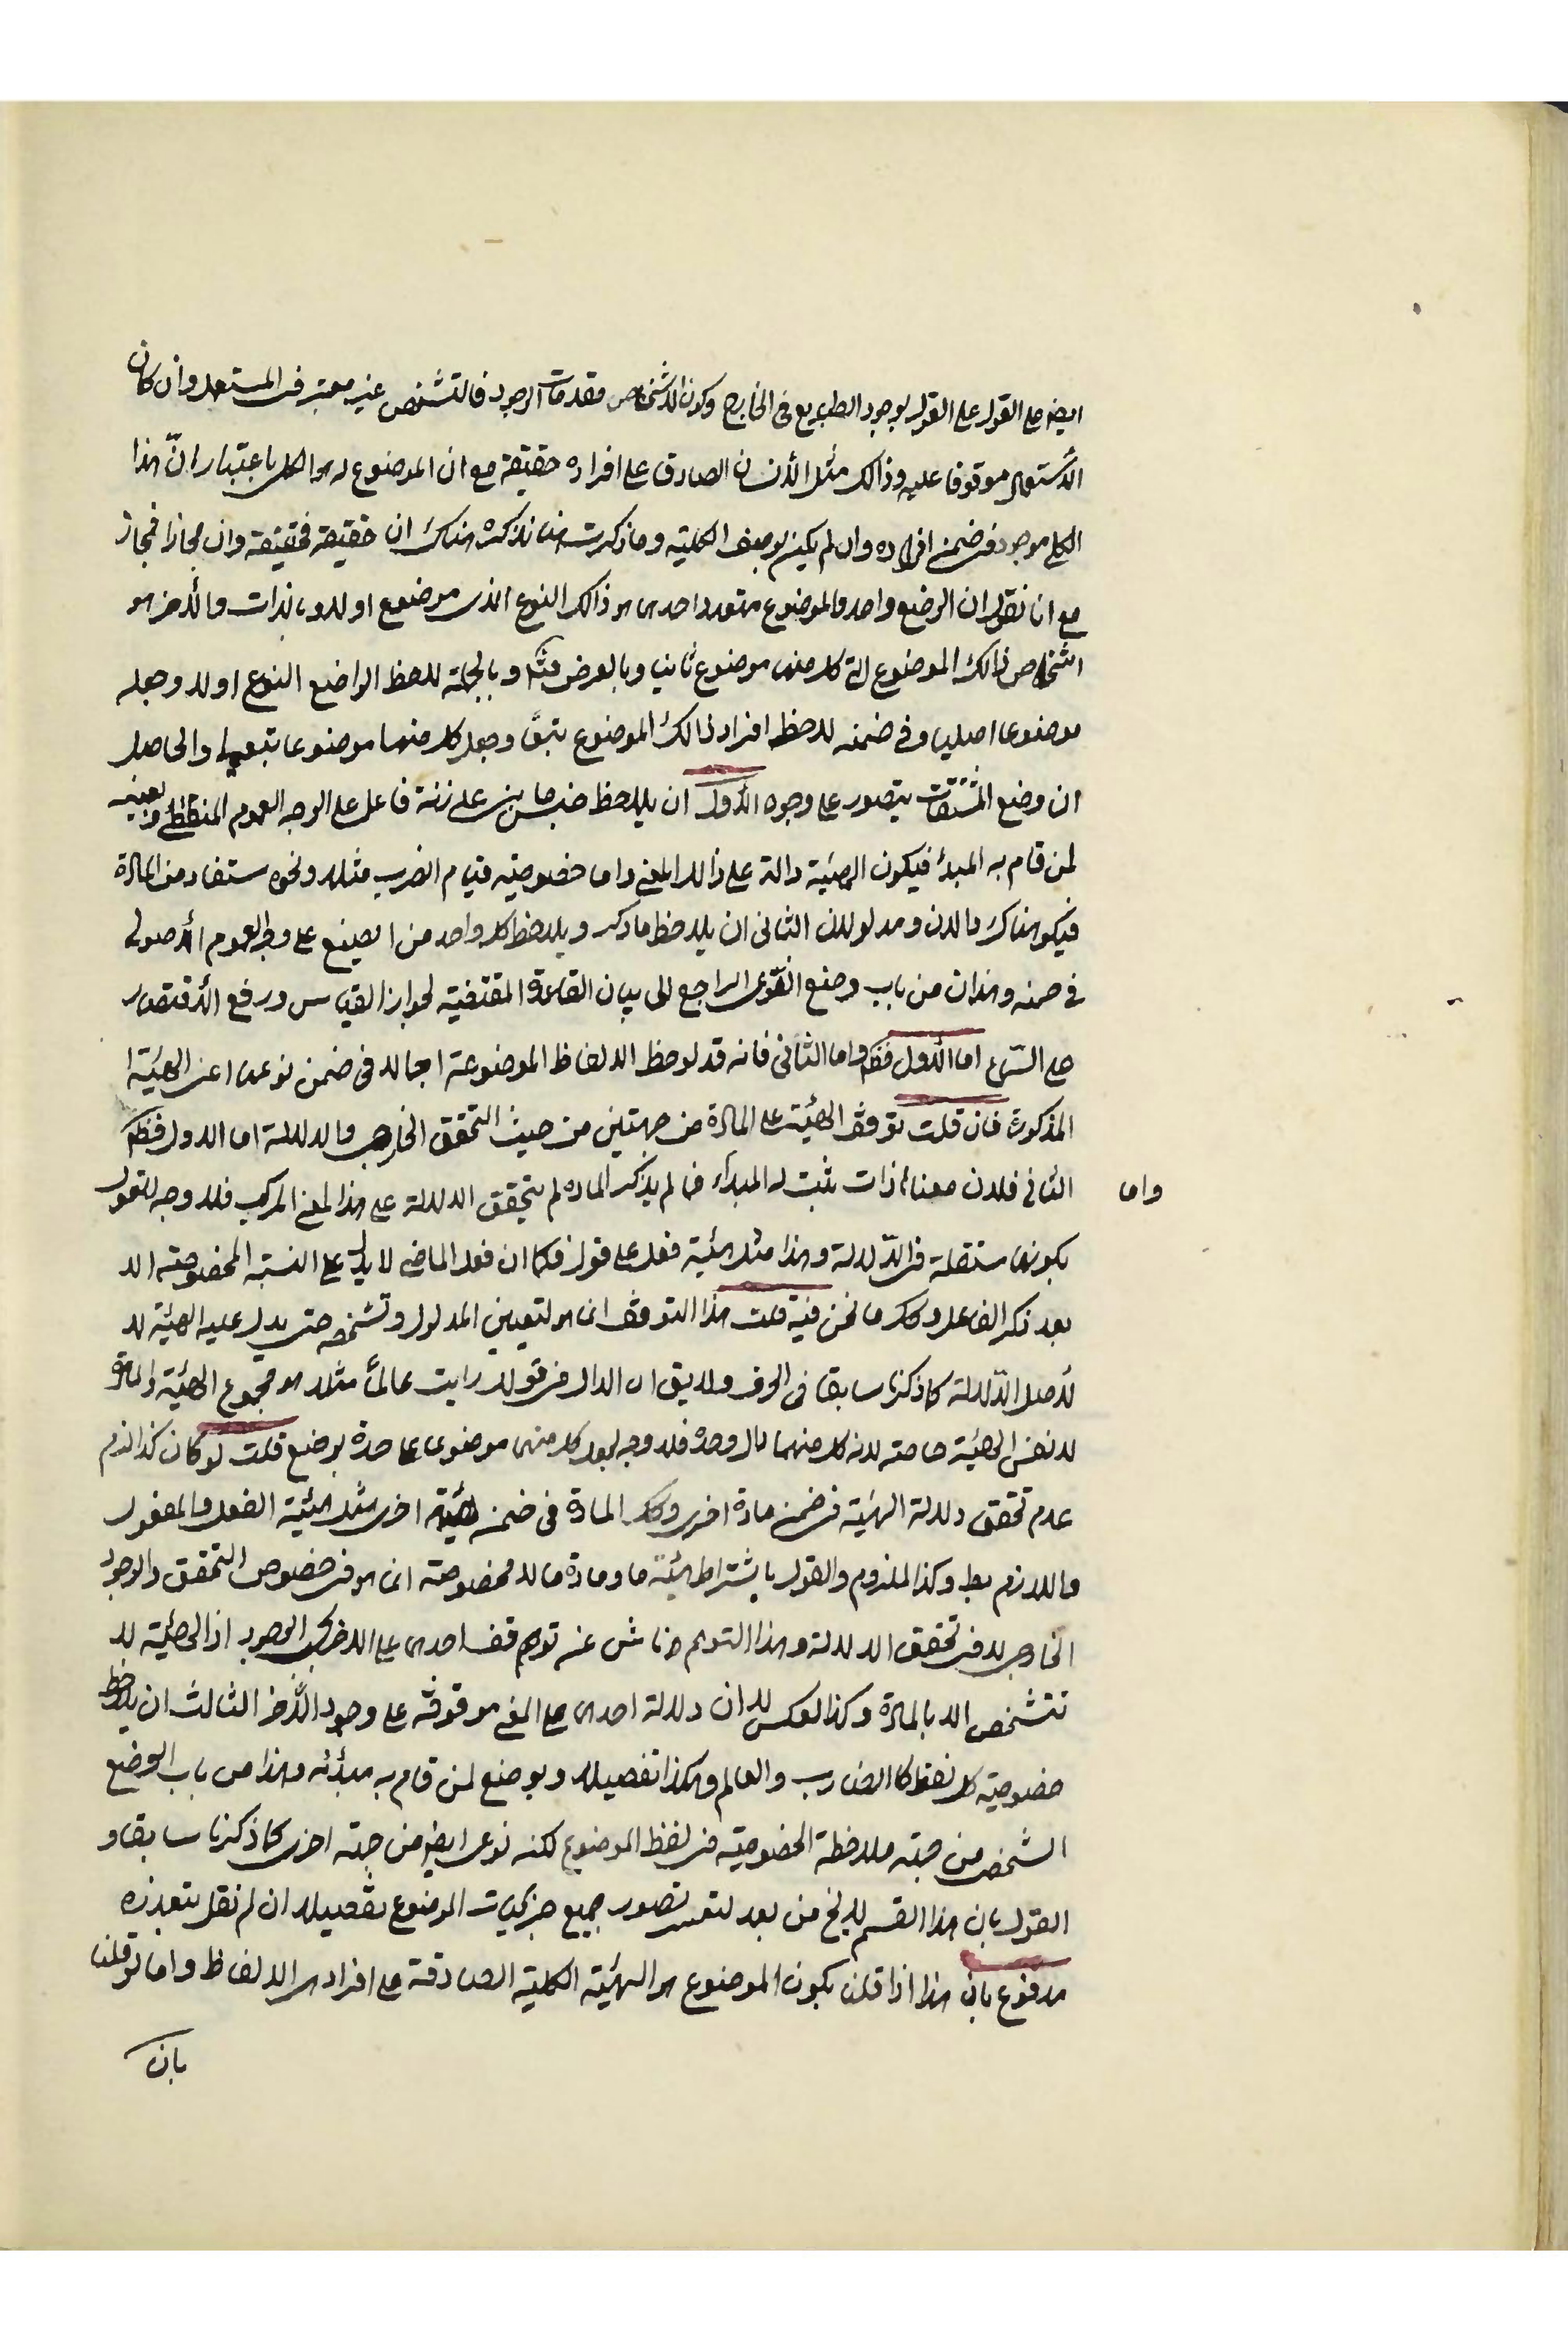 ايضا على القول على القول بوجود الطبايع فى الخارج وكون الاشخاص مقدمات الوجود فالتشخص غير معتبر فى المستعمل وان كان
الأستعمال موقوفا عليه وذالك مثل الأنسان الصادق على افراده حقيقة مع ان الموضوع له هو الكلى باعتبار انّ هذا
الكلى موجود فى ضمن افراده وان لم يكن بوصف الكلية وما ذكرت هنا نذكره هناك ان حقيقة فحقيقة وان مجازا فمجاز
مع انا نقول ان الوضع واحد والموضوع متعدد احدها هو ذالك النوع الذى موضوع اولا وبالذات والأخر هو
اشخاص ذالك الموضوع التى كل منها موضوع ثانيا وبالعرض وبالجملة لاحظ الواضع النوع اولا وجعله
موضوعا اصليا وفى ضمنه لاحظ افراد ذالك الموضوع تبعًا وجعل كلا منها موضوعا تبعيا والحاصل
ان وضع المشتقات يتصور على وجوه الأول ان يلاحظ على زنة فاعل على الوجه العموم المنطقى
لمن قام به المبدأ فيكون الهيئة دالة على ذالك المعنى واما خصوصية قيام الضرب مثلا ونحوه ستفاد من المادة
فيكون هناك دالان ومدلولان الثانى ان يلاحظ ما ذكر ويلاحظ كل واحد من الصيغ على وجه العموم الأصولى
فى ضمنه وهذان من باب وضع النوعى الراجع الى بيان القاعدة المقتضية لجواز القياس ورفع الأقتصار
على السماع اما الأول فظ واما الثانى فانه قد لوحظ الالفاظ الموضوعة اجمالا فى ضمن نوعها اعنى الهيئة
المذكورة فان قلت توقف الهيئة على المادة من جهتين من حيث التحقق الخارجى والدلالة اما الاول فظ
واما الثانى فلان معناه ذات ثبت له المبدأ فما لم يذكر المادة لم يتحقق الدلالة على هذا المعنى المركب فلا وجه للقول
بكونها مستقلة فى الدّلالة وهذا مثل هيئة فعل على قول فكما ان فعل الماضى لا يدل على النسبة المخصوصة الا
بعد ذكر الفاعل وكك ما نحن فيه قلت هذا التوقف انما هو لتعيين المدلول وتشخصه حتى يدل عليه الهيئة لا
لأصل الدّلالة كما ذكرنا سابقا فى الحرف ولا يق ان الدال فى قولك رايت عالمًا مثلا هو مجموع الهيئة والمادة
لا نفس الهيئة خاصة لانه كل منهما دال وحده فلا وجه لجعل كل منها موضوعا على حدة بوضع قلت لو كان كذا لزم
عدم تحقق دلالة الهيئة فى ضمن مادة اخرى وكك المادة فى ضمن هيئة اخرى مثل هيئة الفعل والمفعول
واللازم بط وكذا الملزوم والقول باشتراط هيئة ما ومادة ما لا مخصوصة انما هو فى خصوص التحقق والوجود
الخارجى لا فى تحقق الدلالة وهذا التوهم ناش عن توهم توقف احدها على الاخر فى الوجود اذ الهيئة لا
تتشخص الا بالمادة وكذا العكس لا ان دلالة احدها على المعنى موقوفة على وجود الأخر الثالث ان يلاحظ
خصوصية كل لفظ كالضارب والعالم وهكذا تفصيلا ويوضع لمن قام به مبدأئه وهذا من باب الوضع
الشخصى من جهة ملاحظة الخصوصية فى لفظ الموضوع لكنه نوعى ايضا من جهة اخرى كما ذكرنا سابقا و
القول بان هذا القسم لا يخ من بعد لتعسر تصور جميع جزئيات الموضوع تفصيلا ان لم نقل بتعذره
مدفوع بان هذا اذا قلنا بكون الموضوع هو الهيئة الكلية الصادقة على افرادها الالفاظ واما لو قلنا
بان